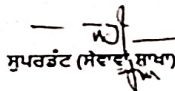 ਸੁਪਰਡੰਟ (ਸੇਵਾਵਾਂ ਸ਼ਾਖਾ)